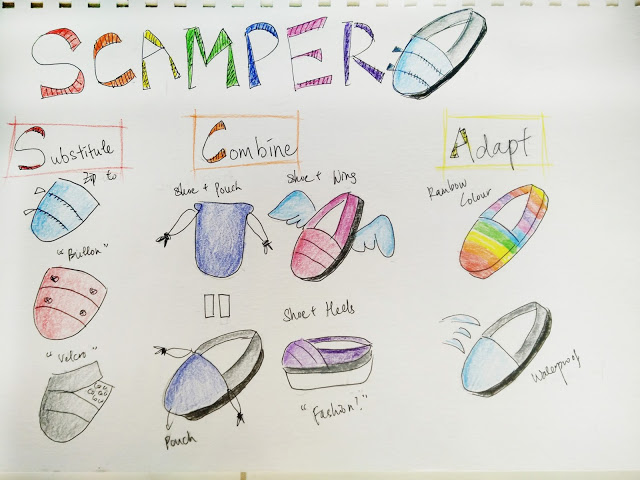 SCAMPER
Substitute
Zip to
"Button"
"Velcro"
Combine
Shoe + Pouch
Pouch
Shoe + Wing
Shoe + Heels
"Fashion?"
Adapt
Rainbow
Colour
Waterproof